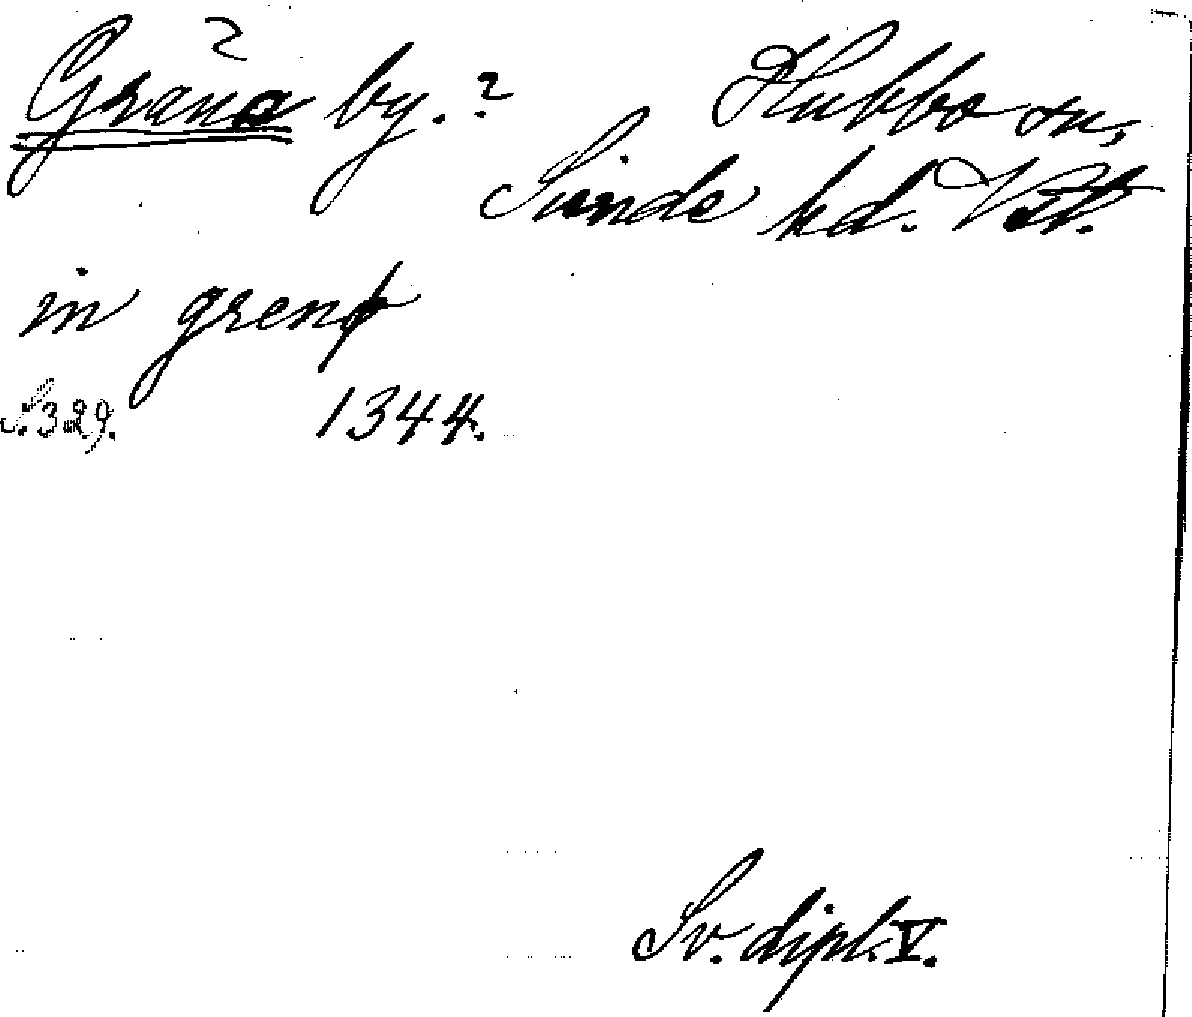 ?
Grana by. ? Hubbo sn,
Sinde hd. Vstm.
in grenø
S. 329. 1344.
Sv. dipl. V.